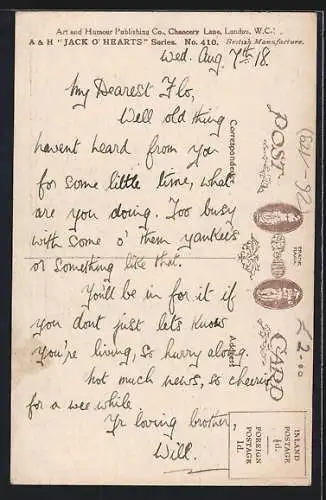 Art and Humour Publishing Co., Chancery Lane, London, W.C.
A & H "JACK O' HEARTS" Series. No. 410. British Manufacture.
Wed. Aug 7th 18.
My Dearest Flo,
Well old thing
havent heard from you
for some little time, what
are you doing. Too busy
with some o' them yankees
or something like that.
You'll be in for it if
you dont just lets know
you're living, so hurry along.
Not much news, so cheerio
for a wee while
Yr loving brother,
Will.
Correspondence
Address
POST
CARD
TRADE
MARK
£2-00
INLAND
POSTAGE
½d.
FOREIGN
POSTAGE
1d.